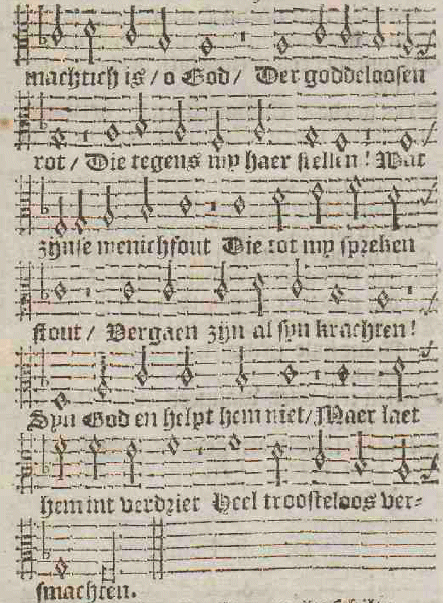 machtich is / o God / Der goddeloosen
rot / Die tegens my haer stellen! Wat
zijnse menichfout Die tot my spreken
stout / Vergaen zijn al syn krachten!
Syn God en helpt hem niet / Maer laet
hem int verdriet Heel troosteloos ver-
smachten.